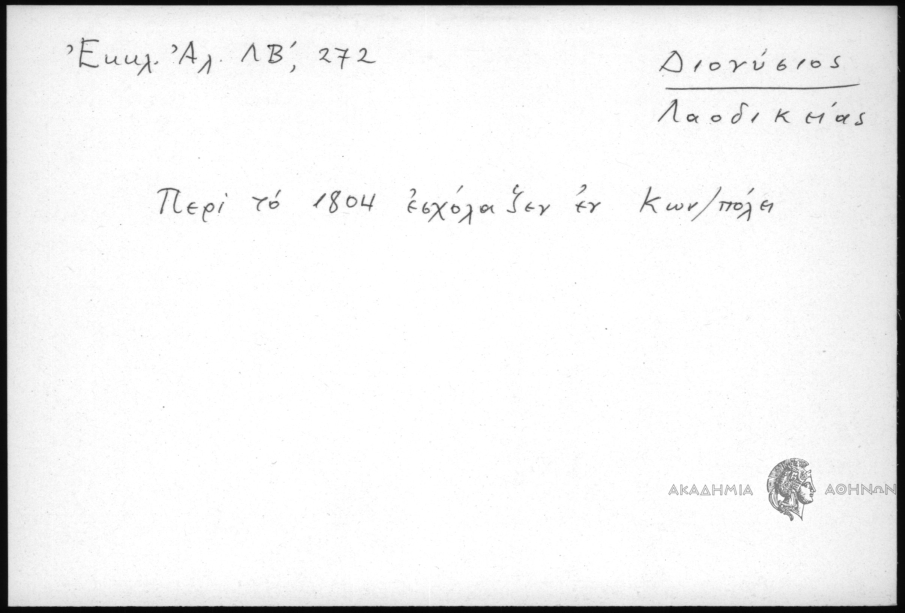 Ἐκκλ. Ἀλ. ΛΒ΄, 272
Διονύσιος
Λαοδικείας
Περί τό 1804 ἐσχόλαζεν ἐν Κων/πόλει
ΑΚΑΔΗΜΙΑ ΑΘΗΝΩΝ